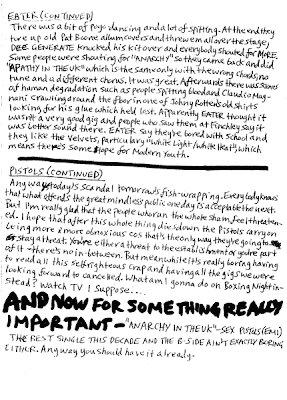 EATER (CONTINUED)
There was a bit of pogo dancing and a lot of spitting. At the end they
tore up old Pat Boone album covers and threw em all over the stage,
DEE GENERATE knocked his kit over and everybody shouted for MORE.
Some people were shouting for "ANARCHY" so they came back and did
"APATHY IN THE UK" which is the same only with the wrong chords, no
tune and a different chorus. It was great. Afterwards there was scenes
of human degradation such as people spitting blood and Claudio Mag-
nani crawling round the floor in one of Johnny Rotten's old shirts
looking for his glue which he'd lost. Apparently EATER thought it
wasn't a very good gig and people who saw them at Finchley say it
was better sound there. EATER say they're bored with School and
they like the Velvets, particulary "White Light/White Heat", which
means there's some hope for Modern Youth.
PISTOLS (CONTINUED)
Anyway today's scandal tomorrow's fish-wrapping. Everybody knows
that what offends the great mindless public one day is acceptable the next.
But I'm really glad that the people who ran the whole sham feel threaten-
ed. I hope that after this whole thing dies down the Pistols carry on
being more & more obnoxious cos that's the only way they're going to
stay a threat. You're either a threat to the establishment or you're part
of it - there's no in-between. But meanwhile it's really boring having
to read all this selfrighteous crap and having all the gigs we were
looking forward to cancelled. What am I gonna do on Boxing Night in-
stead? Watch TV I suppose....
AND NOW FOR SOMETHING REALLY
IMPORTANT - "ANARCHY IN THE UK" - SEX PISTOLS (EMI)
THE BEST SINGLE THIS DECADE AND THE B-SIDE AIN'T EXACTLY BORING
EITHER. Anyway you should have it already.